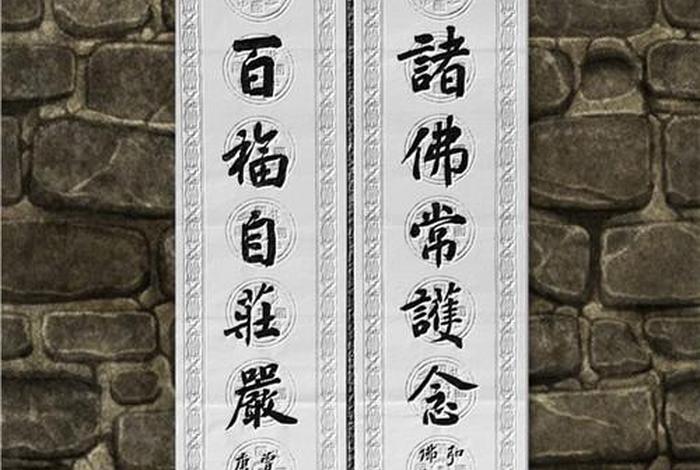 諸佛常護念
百福自莊嚴
弘
佛